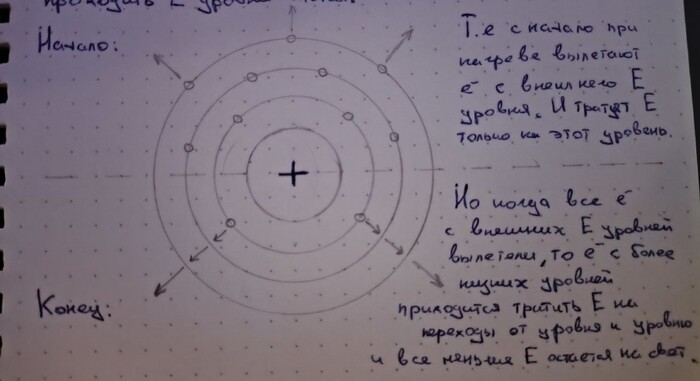 проходить E уровни
Начало:
Т.е сначало при
нагреве вылетают
e⁻ с внешнего E
уровня. И тратят E
только на этот уровень.
+
Но когда все e⁻
с внешних E уровней
вылетели, то e⁻ с более
низших уровней
приходится тратить E на
переходы от уровня к уровню
и все меньше E остается на свет.
Конец: